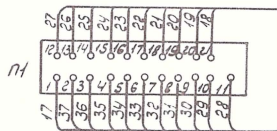 27 26 25 24 23 22 21 20 19 18
12 13 14 15 16 17 18 19 20 21
П1
1 2 3 4 5 6 7 8 9 10 11
17 37 36 35 34 33 32 31 30 29 28